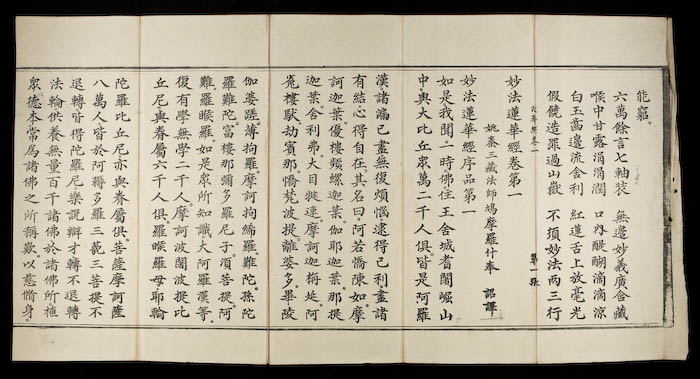 能窮。
六萬餘言七軸裝 無邊妙義廣含藏
喉中甘露涓涓潤 口內醍醐滴滴涼
白玉齒邊流舍利 紅蓮舌上放毫光
假饒造罪過山嶽 不須妙法兩三行
法華經卷一 第一張
妙法蓮華經卷第一
姚秦三藏法師鳩摩羅什奉 詔譯
妙法蓮華經序品第一
如是我聞。一時佛住王舍城耆闍崛山
中。與大比丘眾萬二千人俱。皆是阿羅
漢。諸漏已盡。無復煩惱。逮得己利。盡諸
有結。心得自在。其名曰。阿若憍陳如。摩
訶迦葉。優樓頻螺迦葉。伽耶迦葉。那提
迦葉。舍利弗。大目揵連。摩訶迦旃延。阿
㝹樓馱。劫賓那。憍梵波提。離婆多。畢陵
伽婆蹉。薄拘羅。摩訶拘絺羅。難陀。孫陀
羅難陀。富樓那彌多羅尼子。須菩提。阿
難。羅睺羅。如是眾所知識大阿羅漢等。
復有學無學二千人。摩訶波闍波提比
丘尼與眷屬六千人俱。羅睺羅母耶輸
陀羅比丘尼亦與眷屬俱。菩薩摩訶薩
八萬人皆於阿耨多羅三藐三菩提不
退轉皆得陀羅尼樂說辯才轉不退轉
法輪供養無量百千諸佛於諸佛所植
眾德本常為諸佛之所稱歎。以慈脩身。